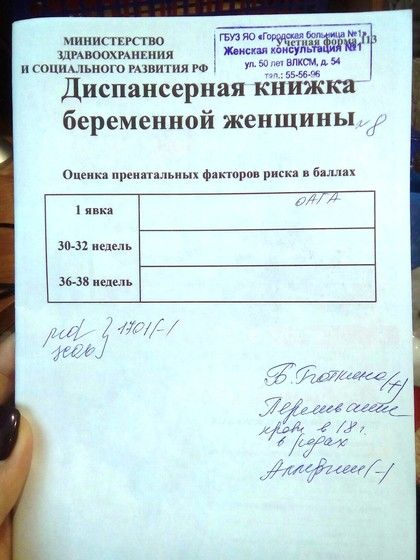 МИНИСТЕРСТВО
ЗДРАВООХРАНЕНИЯ
И СОЦИАЛЬНОГО РАЗВИТИЯ РФ
Учетная форма 113
ГБУЗ ЯО «Городская больница №1»
Женская консультация №1
ул. 50 лет ВЛКСМ, д. 54
тел.: 55-56-96
Диспансерная книжка
беременной женщины
№8
Оценка пренатальных факторов риска в баллах
1 явка ОАГА
30-32 недель
36-38 недель
1701(-)
Б. Боткина (+)
Переливание
крови в 18 г.
в родах
Аллергии (-)